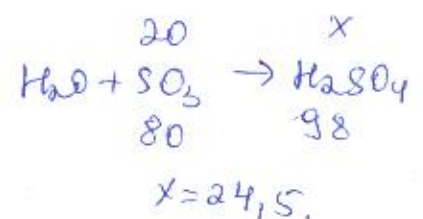 20 x
H₂O + SO₃ → H₂SO₄
80 98
x = 24,5.